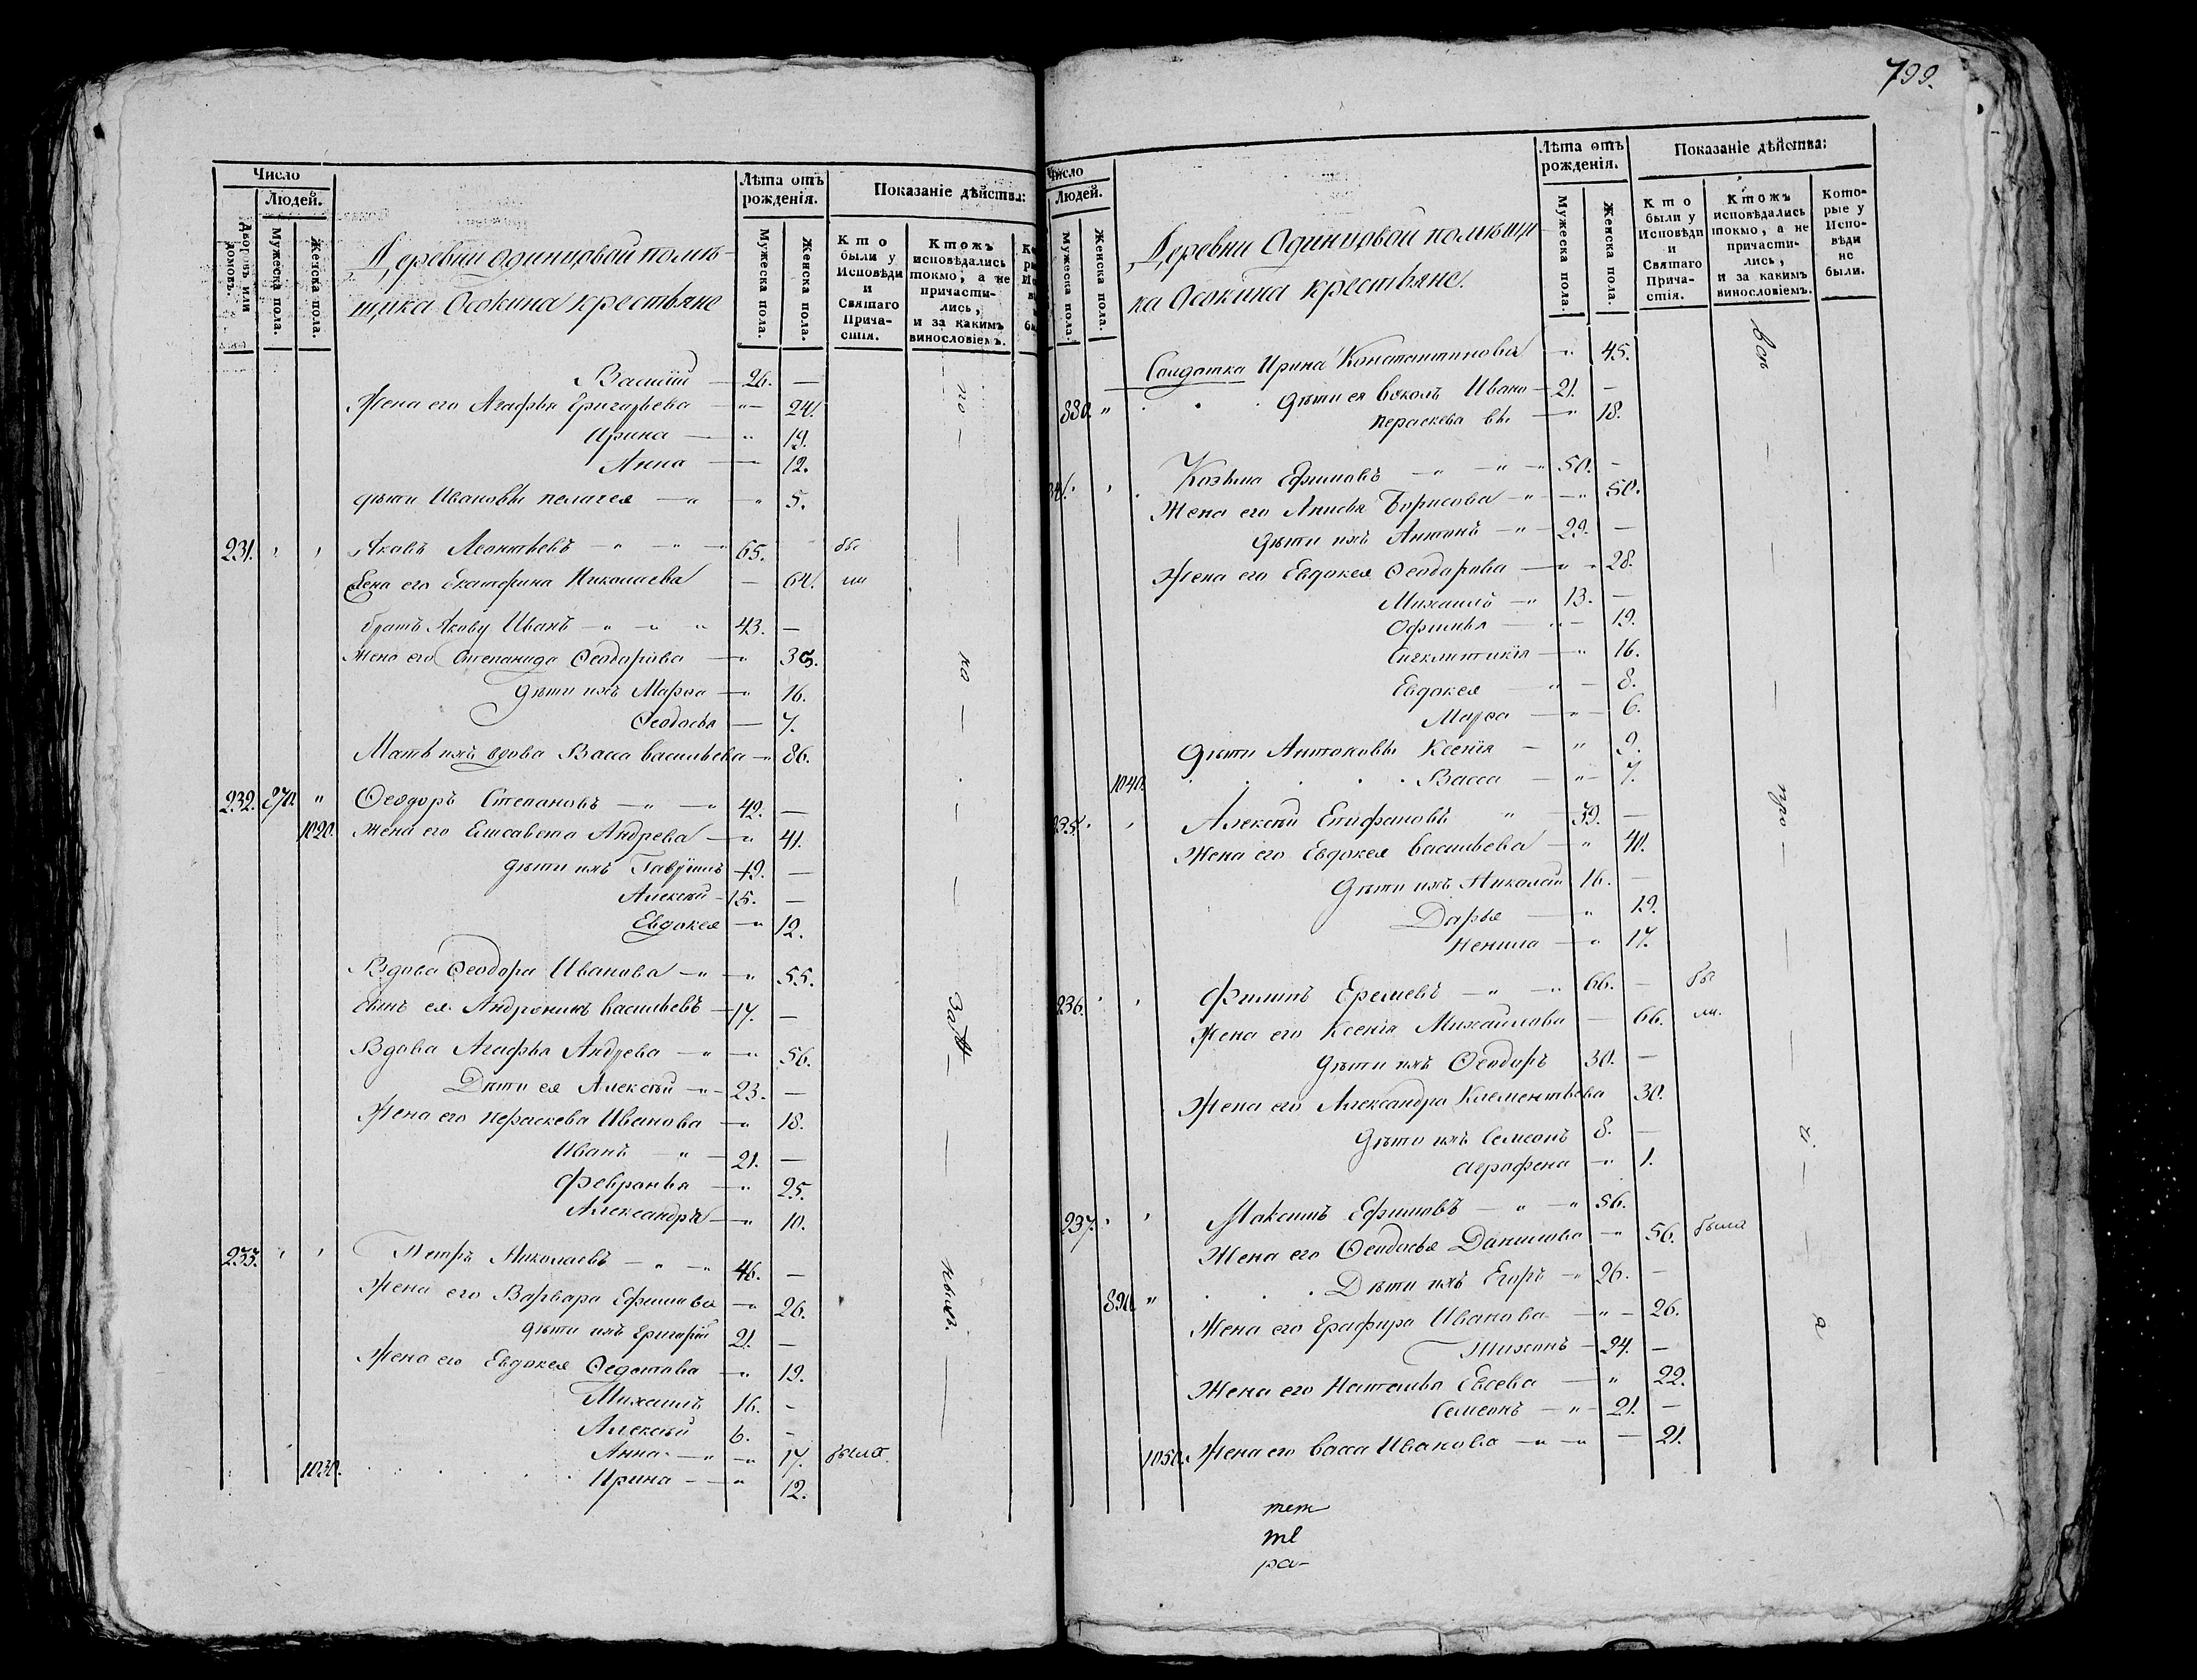 799.
Число
Людей.
Дворовъ или домовъ.
Мужеска пола.
Женска пола.
Деревни Одинцовой помѣ-
щика Осокина крестьяне
Лѣта отъ рожденія.
Мужеска пола.
Женска пола.
Показаніе дѣйства:
Кто были у Исповѣди и Святаго Прича-стія.
Ктожъ исповѣдались токмо, а не причасти-лись, и за какимъ винословіемъ.
Василій — 26. —
Жена его Агафья Григорьева — 24.
Ирина — 19.
Анна — 12.
дѣти Ивановы Пелагея — 5.
231. Яковъ Леонтьевъ — 65. бы
Жена его Екатерина Николаева — 64. ли
братъ Якову Иванъ — 43. —
Жена его Степанида Ѳеодорова — 35.
дѣти ихъ Марѳа — 16.
Ѳеодосья — 7.
Мать ихъ вдова Васса Васильева — 86.
232. 870. " Ѳеодоръ Степановъ — 42. —
1020. Жена его Елисавета Андреева — 41.
дѣти ихъ Гавріилъ — 19. —
Алексѣй — 15. —
Евдокея — 12.
Вдова Ѳеодора Иванова — 55.
сынъ ея Андроникъ Васильевъ — 17. —
Вдова Агафья Андреева — 56.
Дѣти ея Алексѣй — 23. —
Жена его Пераскева Иванова — 18.
Иванъ — 21. —
Февранья — 25.
Александра — 10.
233. Петръ Николаевъ — 46. —
Жена его Варвара Ефимова — 26.
дѣти ихъ Григорій 21. —
Жена его Евдокея Ѳедотова — 19.
Михаилъ 16. —
Алексѣй 6. —
Анна — 17. была.
1030. Ирина — 12.
Число
Людей.
Мужеска пола.
Женска пола.
Деревни Одинцовой помѣщи-
ка Осокина крестьяне.
Лѣта отъ рожденія.
Мужеска пола.
Женска пола.
Показаніе дѣйства:
Кто были у Исповѣди и Святаго Прича-стія.
Ктожъ исповѣдались токмо, а не причасти-лись, и за какимъ винословіемъ.
Кото-рые у Испо-вѣди не были.
Солдатка Ирина Константинова — 45.
880. " дѣти ея Вуколъ Ивано — 21. —
Пераскева вы — 18.
Козьма Ефимовъ — 50. —
Жена его Анисья Борисова — 50.
дѣти ихъ Антонъ — 29. —
Жена его Евдокея Ѳеодорова — 28.
Михаилъ — 13. —
Офимья — 19.
Сигклитикія — 16.
Евдокея — 8.
Марѳа — 6.
дѣти Антоновы Ксенія — 9.
1040. Васса — 7.
235. Алексѣй Епифановъ 39. —
Жена его Евдокея Васильева — 40.
дѣти ихъ Николай 16. —
Дарья — 19.
Ненила — 17.
236. Филипъ Еремеевъ — 66. — бы
Жена его Ксенія Михаилова — 66. ли.
дѣти ихъ Ѳеодоръ 30. —
Жена его Александра Клементьева 30.
дѣти ихъ Семеонъ 8. —
Аграфена — 1.
237. Максимъ Ефимовъ — 56.
Жена его Ѳеодосья Данилова — 56. была
890. " Дѣти ихъ Егоръ — 26. —
Жена его Глафира Иванова — 26.
Тихонъ — 24. —
Жена его Наталья Евсева — 22.
Семеонъ — 21. —
1050. Жена его Васса Иванова — 21.